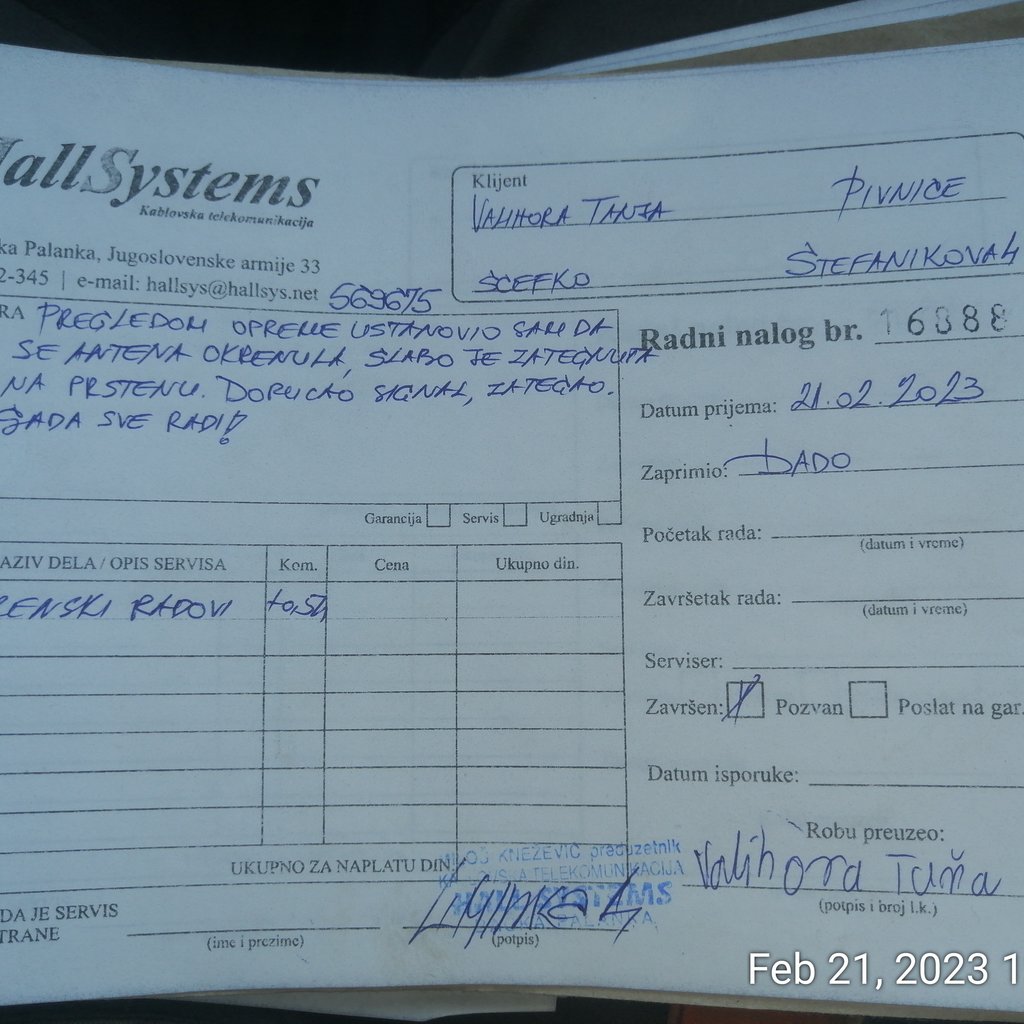 HallSystems
Kablovska telekomunikacija
ka Palanka, Jugoslovenske armije 33
2-345 | e-mail: hallsys@hallsys.net
569675
Klijent
VALIHORA TANJA PIVNICE
ŠĆEFKO ŠTEFANIKOVA 4
RA PREGLEDOM OPREME USTANOVIO SAM DA
SE ANTENA OKRENULA, SLABO JE ZATEGNUTA
NA PRSTENU. DORUCAO SIGNAL, ZATEGAO.
SADA SVE RADI!
Garancija Servis Ugradnja
Radni nalog br. 16388
Datum prijema: 21.02.2023
Zaprimio: DADO
Početak rada:
(datum i vreme)
Završetak rada:
(datum i vreme)
Serviser:
Završen: Pozvan Poslat na gar.
Datum isporuke:
AZIV DELA / OPIS SERVISA Kom. Cena Ukupno din.
RENSKI RADOVI
UKUPNO ZA NAPLATU DIN
KNEŽEVIĆ preduzetnik
TELEKOMUNIKACIJA
HALL SYSTEMS
PALANKA
DA JE SERVIS
TRANE
(ime i prezime)
(potpis)
Robu preuzeo:
Valihora Taňa
(potpis i broj l.k.)
Feb 21, 2023 1